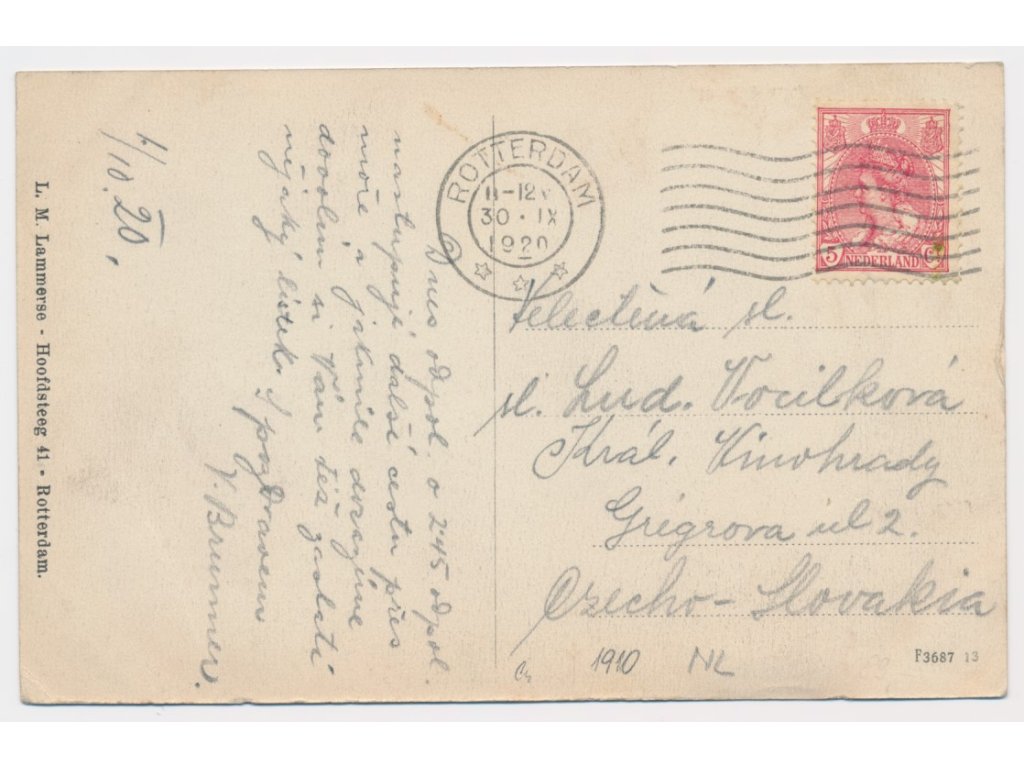 L. M. Lammerse - Hoofdsteeg 41 - Rotterdam.
1/10. 20.
Dnes odpol. o 2·45 odpol.
nastupuji další cestu přes
moře a jakmile dorazíme
dovolím si Vám též zaslati
nějaký lístek. S pozdravem
V. Brunner.
ROTTERDAM
11-12
30 · IX
1920
5 C
NEDERLAND
Velectěná sl.
sl. Lud. Vocilková
Král. Vinohrady
Grégrova ul 2.
Czecho-Slovakia
1910 NL
F3687 13